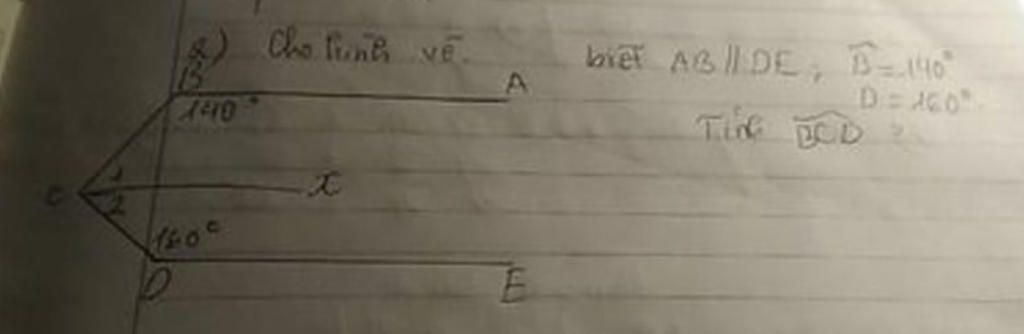 2) Cho hình vẽ. biết AB // DE; B̂ = 140°
D = 160°
Tính BCD ?
B A
140°
C 1 x
2
160°
D E